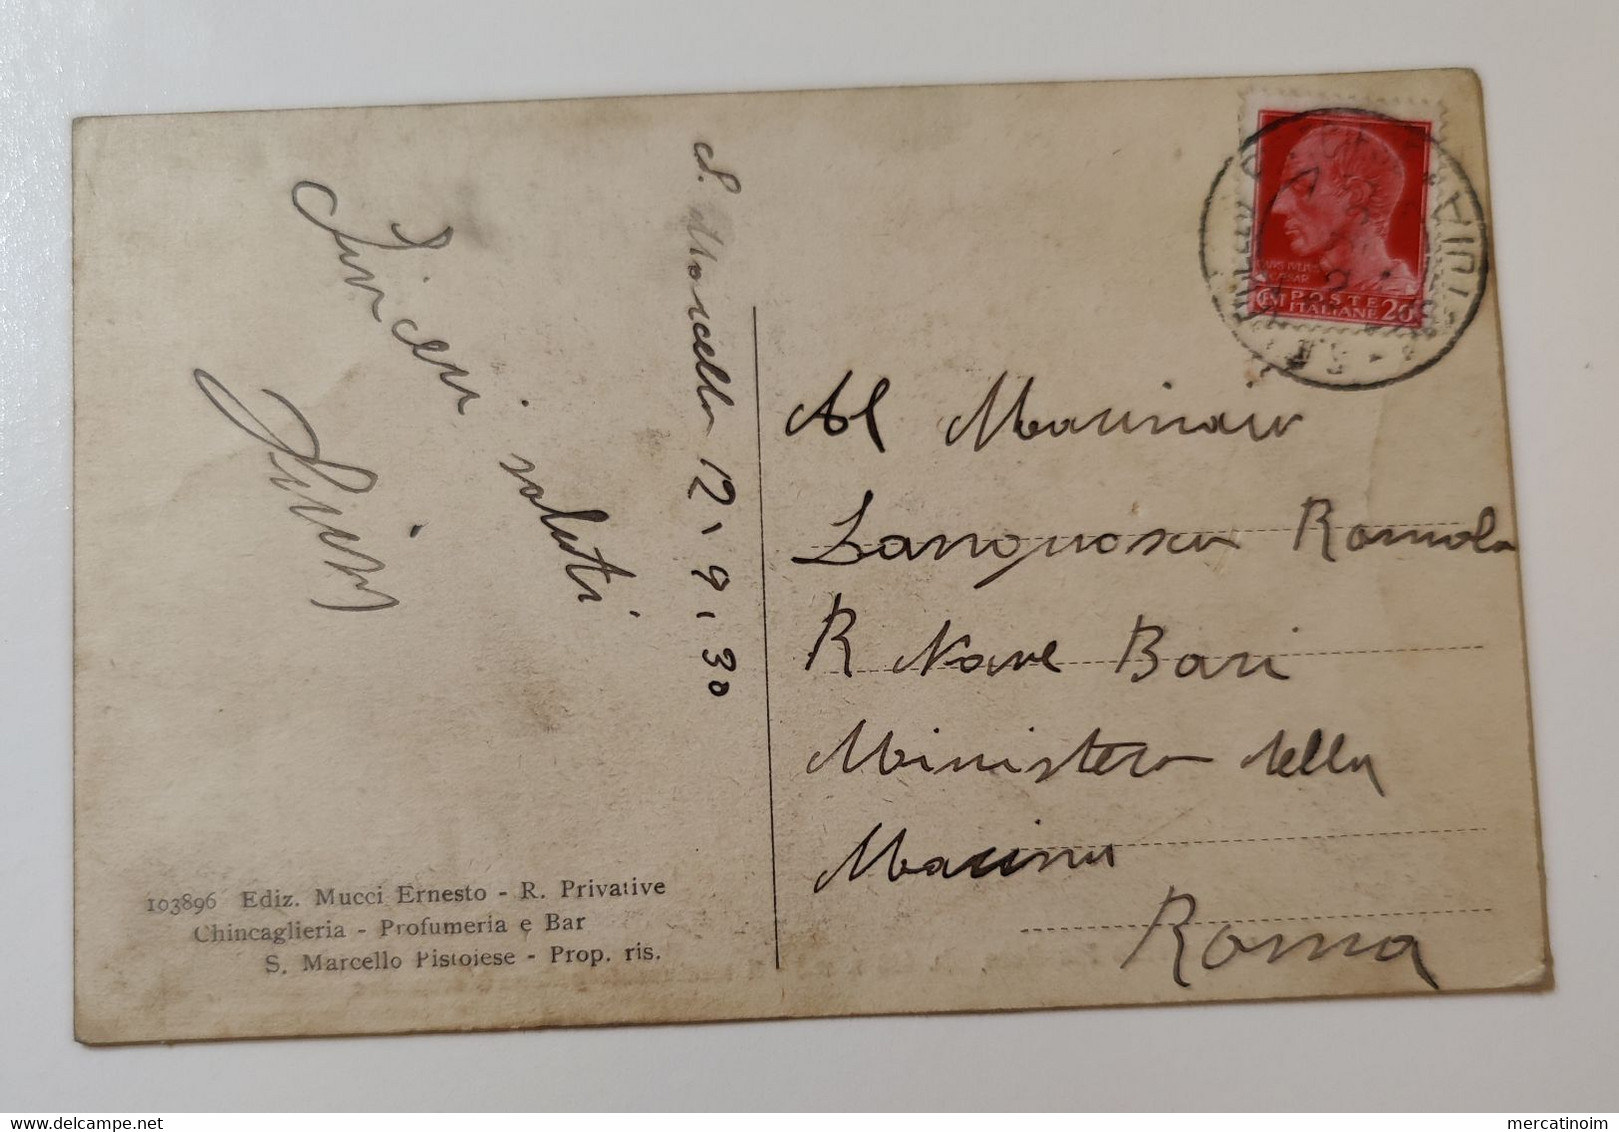 S. Marcello 12.9.30
Sinceri
saluti
Al Marinaio
Romolo
R Nave Bari
Ministero della
Marina
Roma
POSTE
ITALIANE 20
103896 Ediz. Mucci Ernesto - R. Privative
Chincaglieria - Profumeria e Bar
S. Marcello Pistoiese - Prop. ris.
mercatinoim